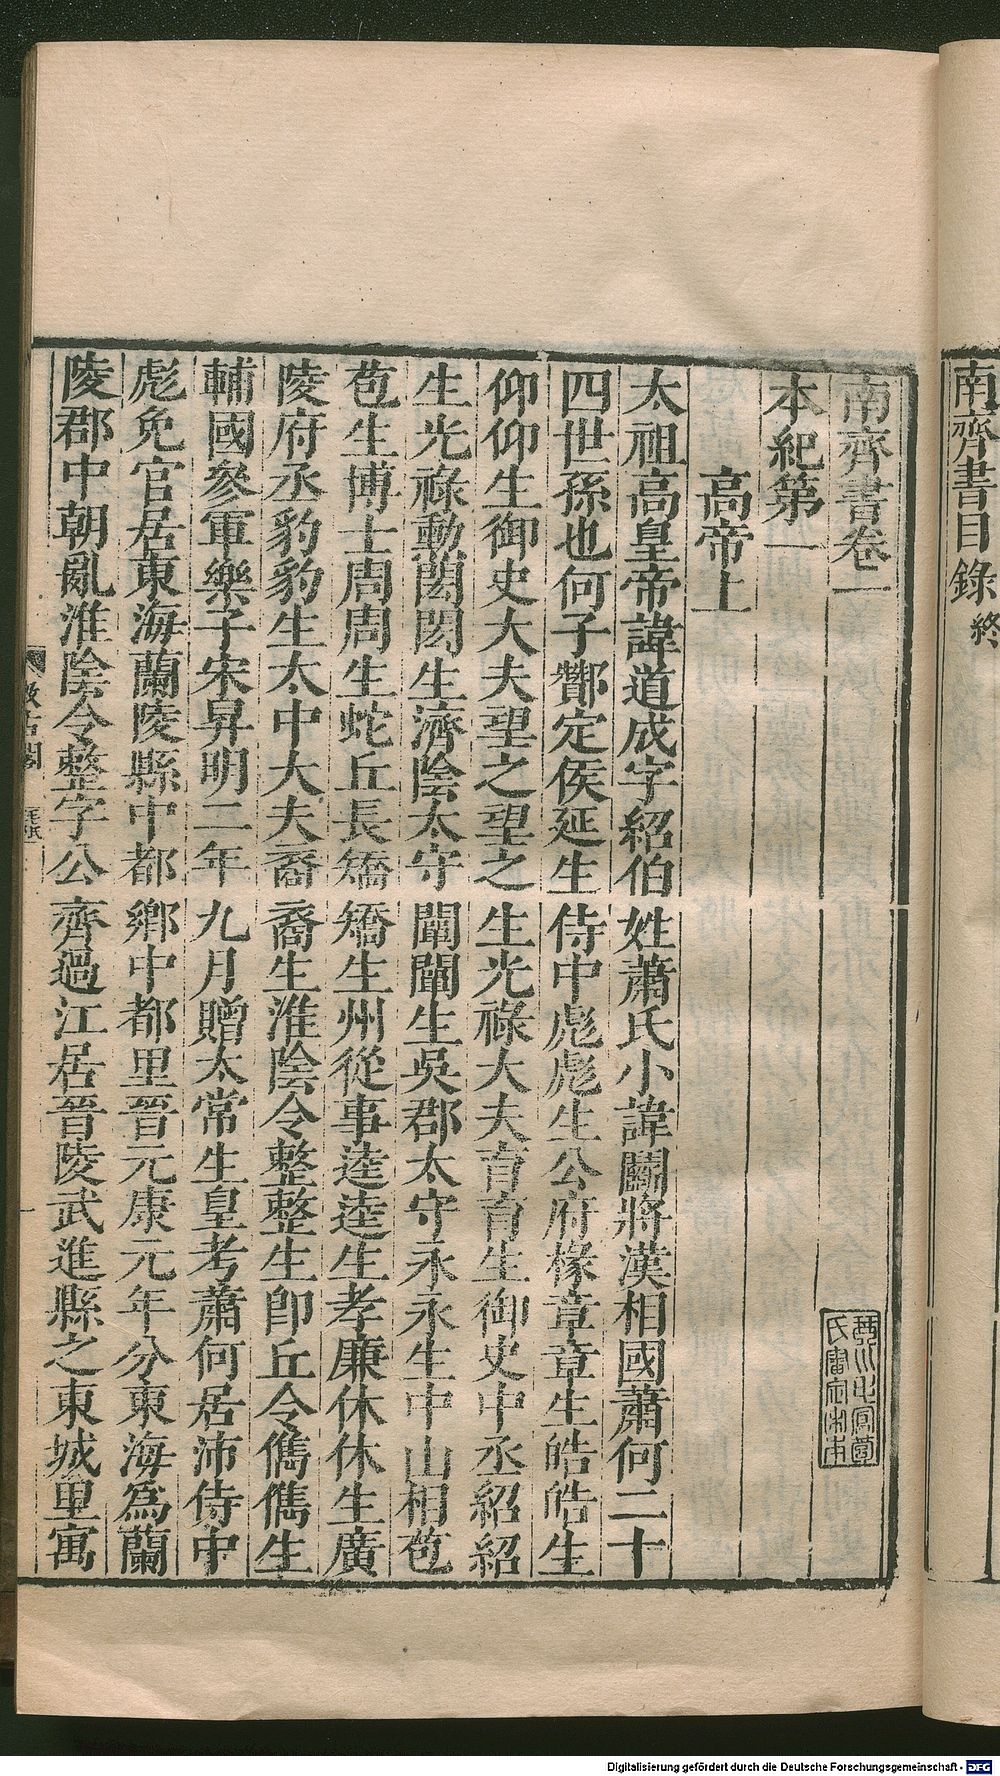 南齊書目錄終
南齊書卷一
本紀第一
高帝上
太祖高皇帝諱道成字紹伯姓蕭氏小諱鬬將漢相國蕭何二十
四世孫也何子酇定侯延生侍中彪彪生公府椽章章生皓皓生
仰仰生御史大夫望之望之生光祿大夫育育生御史中丞紹紹
生光祿勳閎閎生濟陰太守闡闡生吳郡太守永永生中山相苞
苞生博士周周生蛇丘長矯矯生州從事逵逵生孝廉休休生廣
陵府丞豹豹生太中大夫裔裔生淮陰令整整生卽丘令儁儁生
輔國參軍樂子宋昇明二年九月贈太常生皇考蕭何居沛侍中
彪免官居東海蘭陵縣中都鄉中都里晉元康元年分東海為蘭
陵郡中朝亂淮陰令整字公齊過江居晉陵武進縣之東城里寓
汲古閣
毛氏
Digitalisierung gefördert durch die Deutsche Forschungsgemeinschaft - DFG